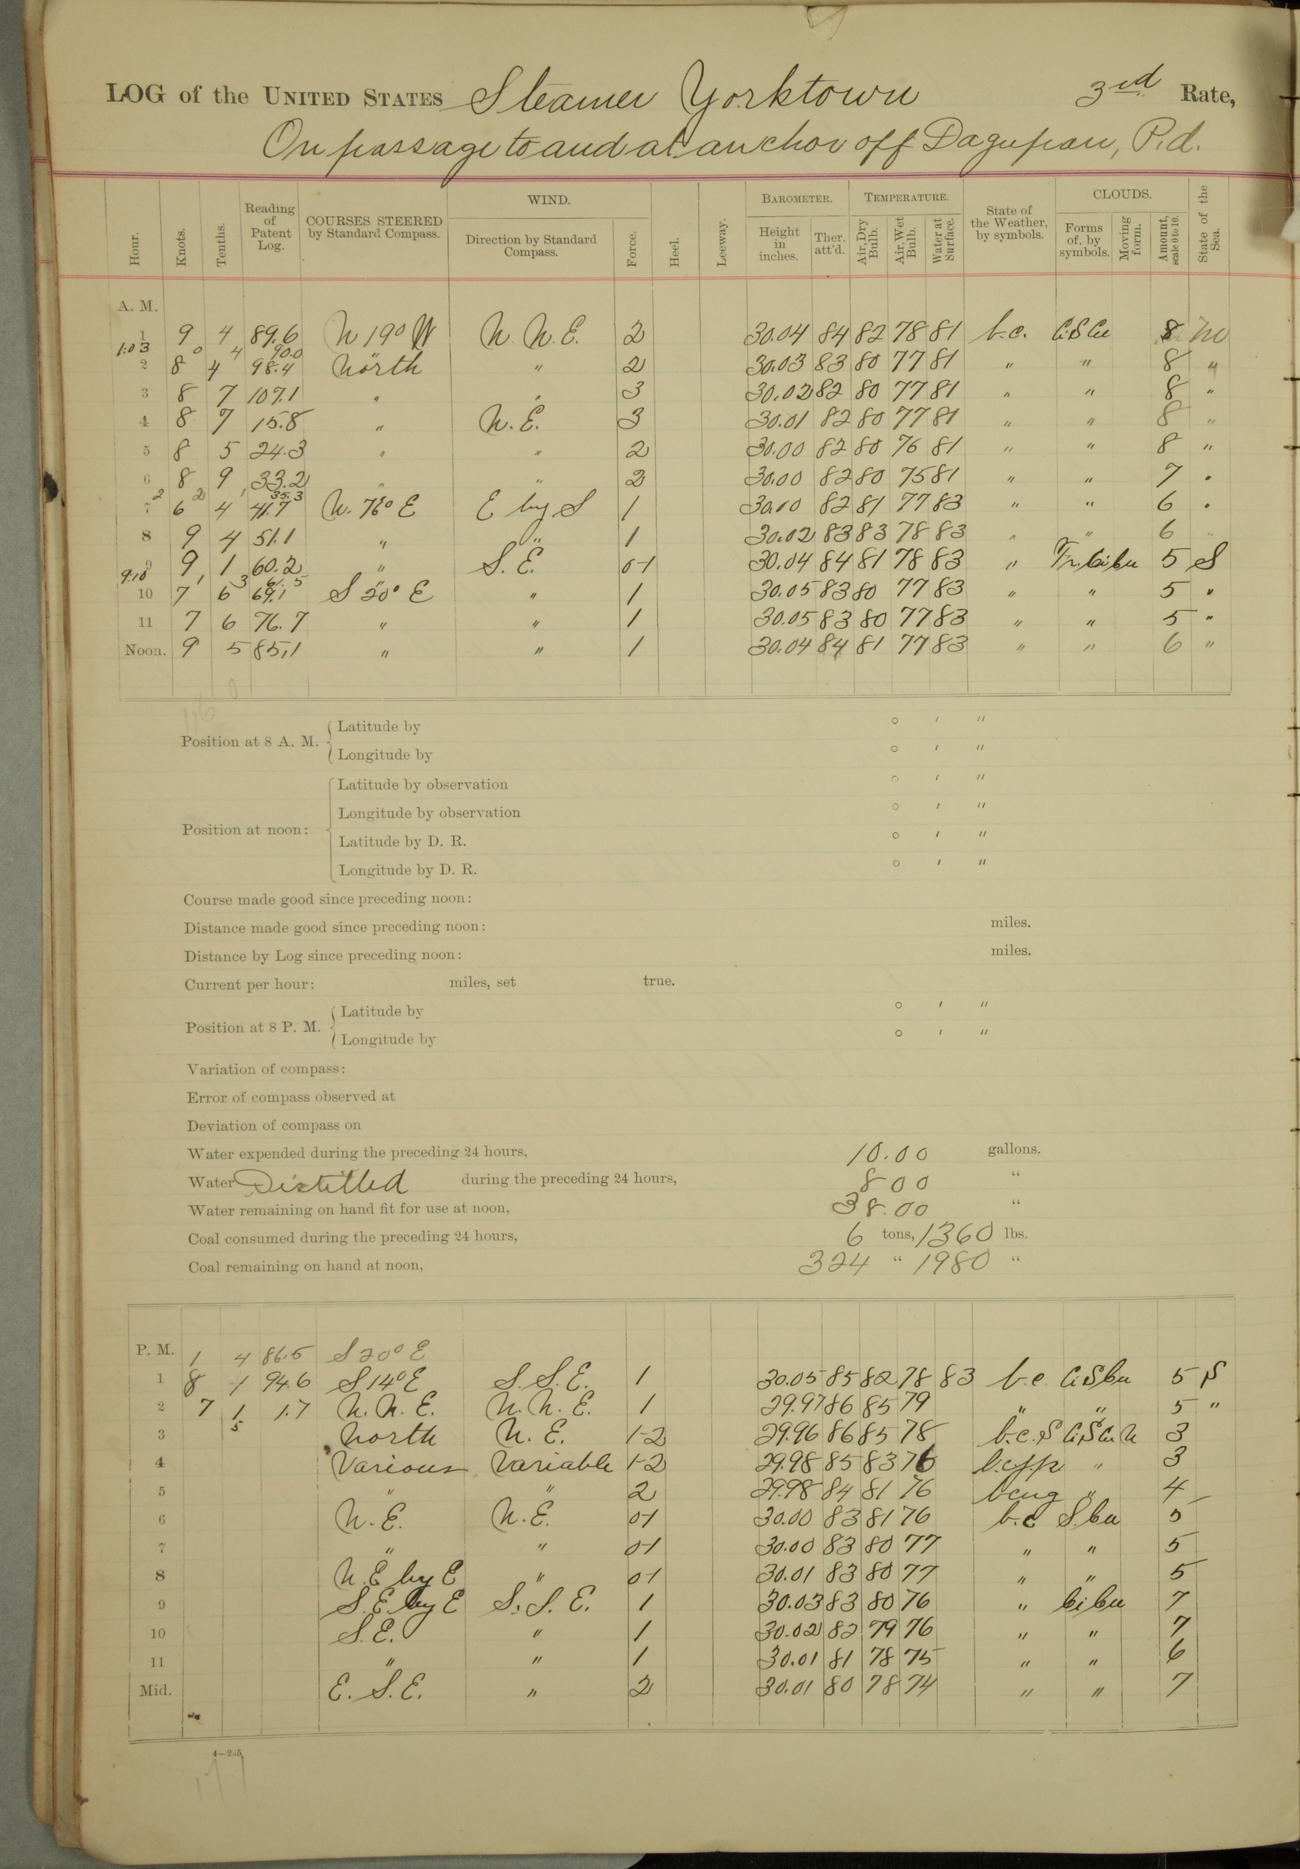 LOG of the UNITED STATES Steamer Yorktown 3rd Rate,
On passage to and at anchor off Dagupan, P.d.
Hour. Knots. Tenths. Reading of Patent Log. COURSES STEERED by Standard Compass. WIND. Direction by Standard Compass. Force. Heel. Leeway. BAROMETER. Height in inches. Ther. att'd. TEMPERATURE. Air, Dry Bulb. Air, Wet Bulb. Water at Surface. State of the Weather, by symbols. CLOUDS. Forms of, by symbols. Moving form. Amount, scale 0 to 10. State of the Sea.
A. M.
1 9 4 89.6 N 19° W N. N. E. 2 30.04 84 82 78 81 b.c. Ci.S.Cu 8 m
1.03 0 4 90.0
2 8 4 98.4 North " 2 30.03 83 80 77 81 " " 8 "
3 8 7 107.1 " " 3 30.02 82 80 77 81 " " 8 "
4 8 7 15.8 " N. E. 3 30.01 82 80 77 81 " " 8 "
5 8 5 24.3 " " 2 30.00 82 80 76 81 " " 8 "
6 8 9 33.2 " " 2 30.00 82 80 75 81 " " 7 "
2 2 1 35.3
7 6 4 41.7 N. 76° E E by S 1 30.00 82 81 77 83 " " 6 "
8 9 4 51.1 " " 1 30.02 83 83 78 83 " " 6 "
9 9 1 60.2 " S. E. 0-1 30.04 84 81 78 83 " Fr. Ci Cu 5 S
9.10 1 3 61.5
10 7 6 69.1 S 20° E " 1 30.05 83 80 77 83 " " 5 "
11 7 6 76.7 " " 1 30.05 83 80 77 83 " " 5 "
Noon. 9 5 85.1 " " 1 30.04 84 81 77 83 " " 6 "
Position at 8 A. M. Latitude by ° ' "
Longitude by ° ' "
Position at noon: Latitude by observation ° ' "
Longitude by observation ° ' "
Latitude by D. R. ° ' "
Longitude by D. R. ° ' "
Course made good since preceding noon:
Distance made good since preceding noon: miles.
Distance by Log since preceding noon: miles.
Current per hour: miles, set true.
Position at 8 P. M. Latitude by ° ' "
Longitude by ° ' "
Variation of compass:
Error of compass observed at
Deviation of compass on
Water expended during the preceding 24 hours, 10.00 gallons.
Water Distilled during the preceding 24 hours, 800 "
Water remaining on hand fit for use at noon, 38.00 "
Coal consumed during the preceding 24 hours, 6 tons, 1360 lbs.
Coal remaining on hand at noon, 324 " 1980 "
P. M. 1 4 86.5 S 20° E
1 8 1 94.6 S 14° E S. S. E. 1 30.05 85 82 78 83 b.c. Ci.S.Cu 5 S
2 7 1 1.7 N. N. E. N. N. E. 1 29.97 86 85 79 " " 5 "
5
3 North N. E. 1-2 29.96 86 85 78 3
4 Various Variable 1-2 29.98 85 83 76 " 3
5 " " 2 29.98 84 81 76 " 4
6 N. E. N. E. 0-1 30.00 83 81 76 b.c S. Cu 5
7 " " 0-1 30.00 83 80 77 " " 5
8 N. E by E " 0-1 30.01 83 80 77 " " 5
9 S. E. by E S. S. E. 1 30.03 83 80 76 " Ci Cu 7
10 S. E. " 1 30.02 82 79 76 " " 7
11 " " 1 30.01 81 78 75 " " 6
Mid. E. S. E. " 2 30.01 80 78 74 " " 7
4—235